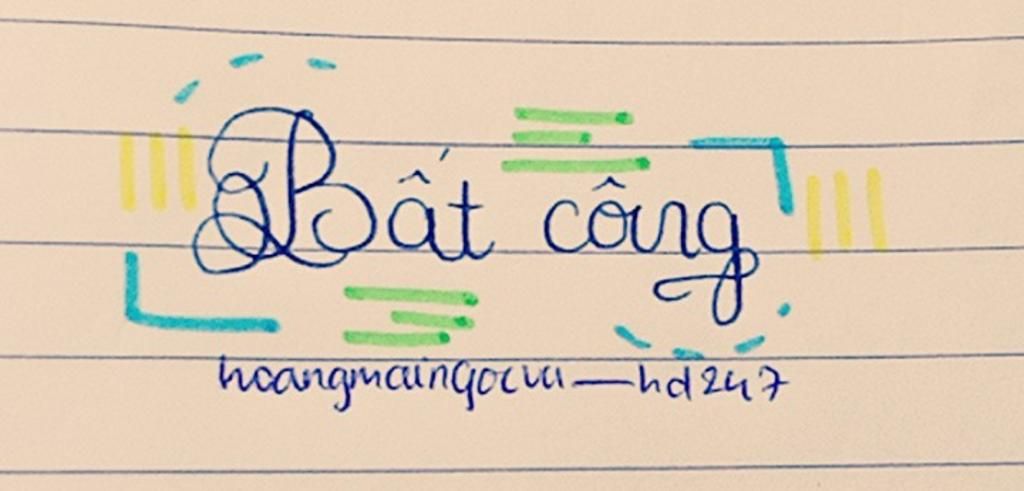 Bất công
hoangmaingocvu—hd247